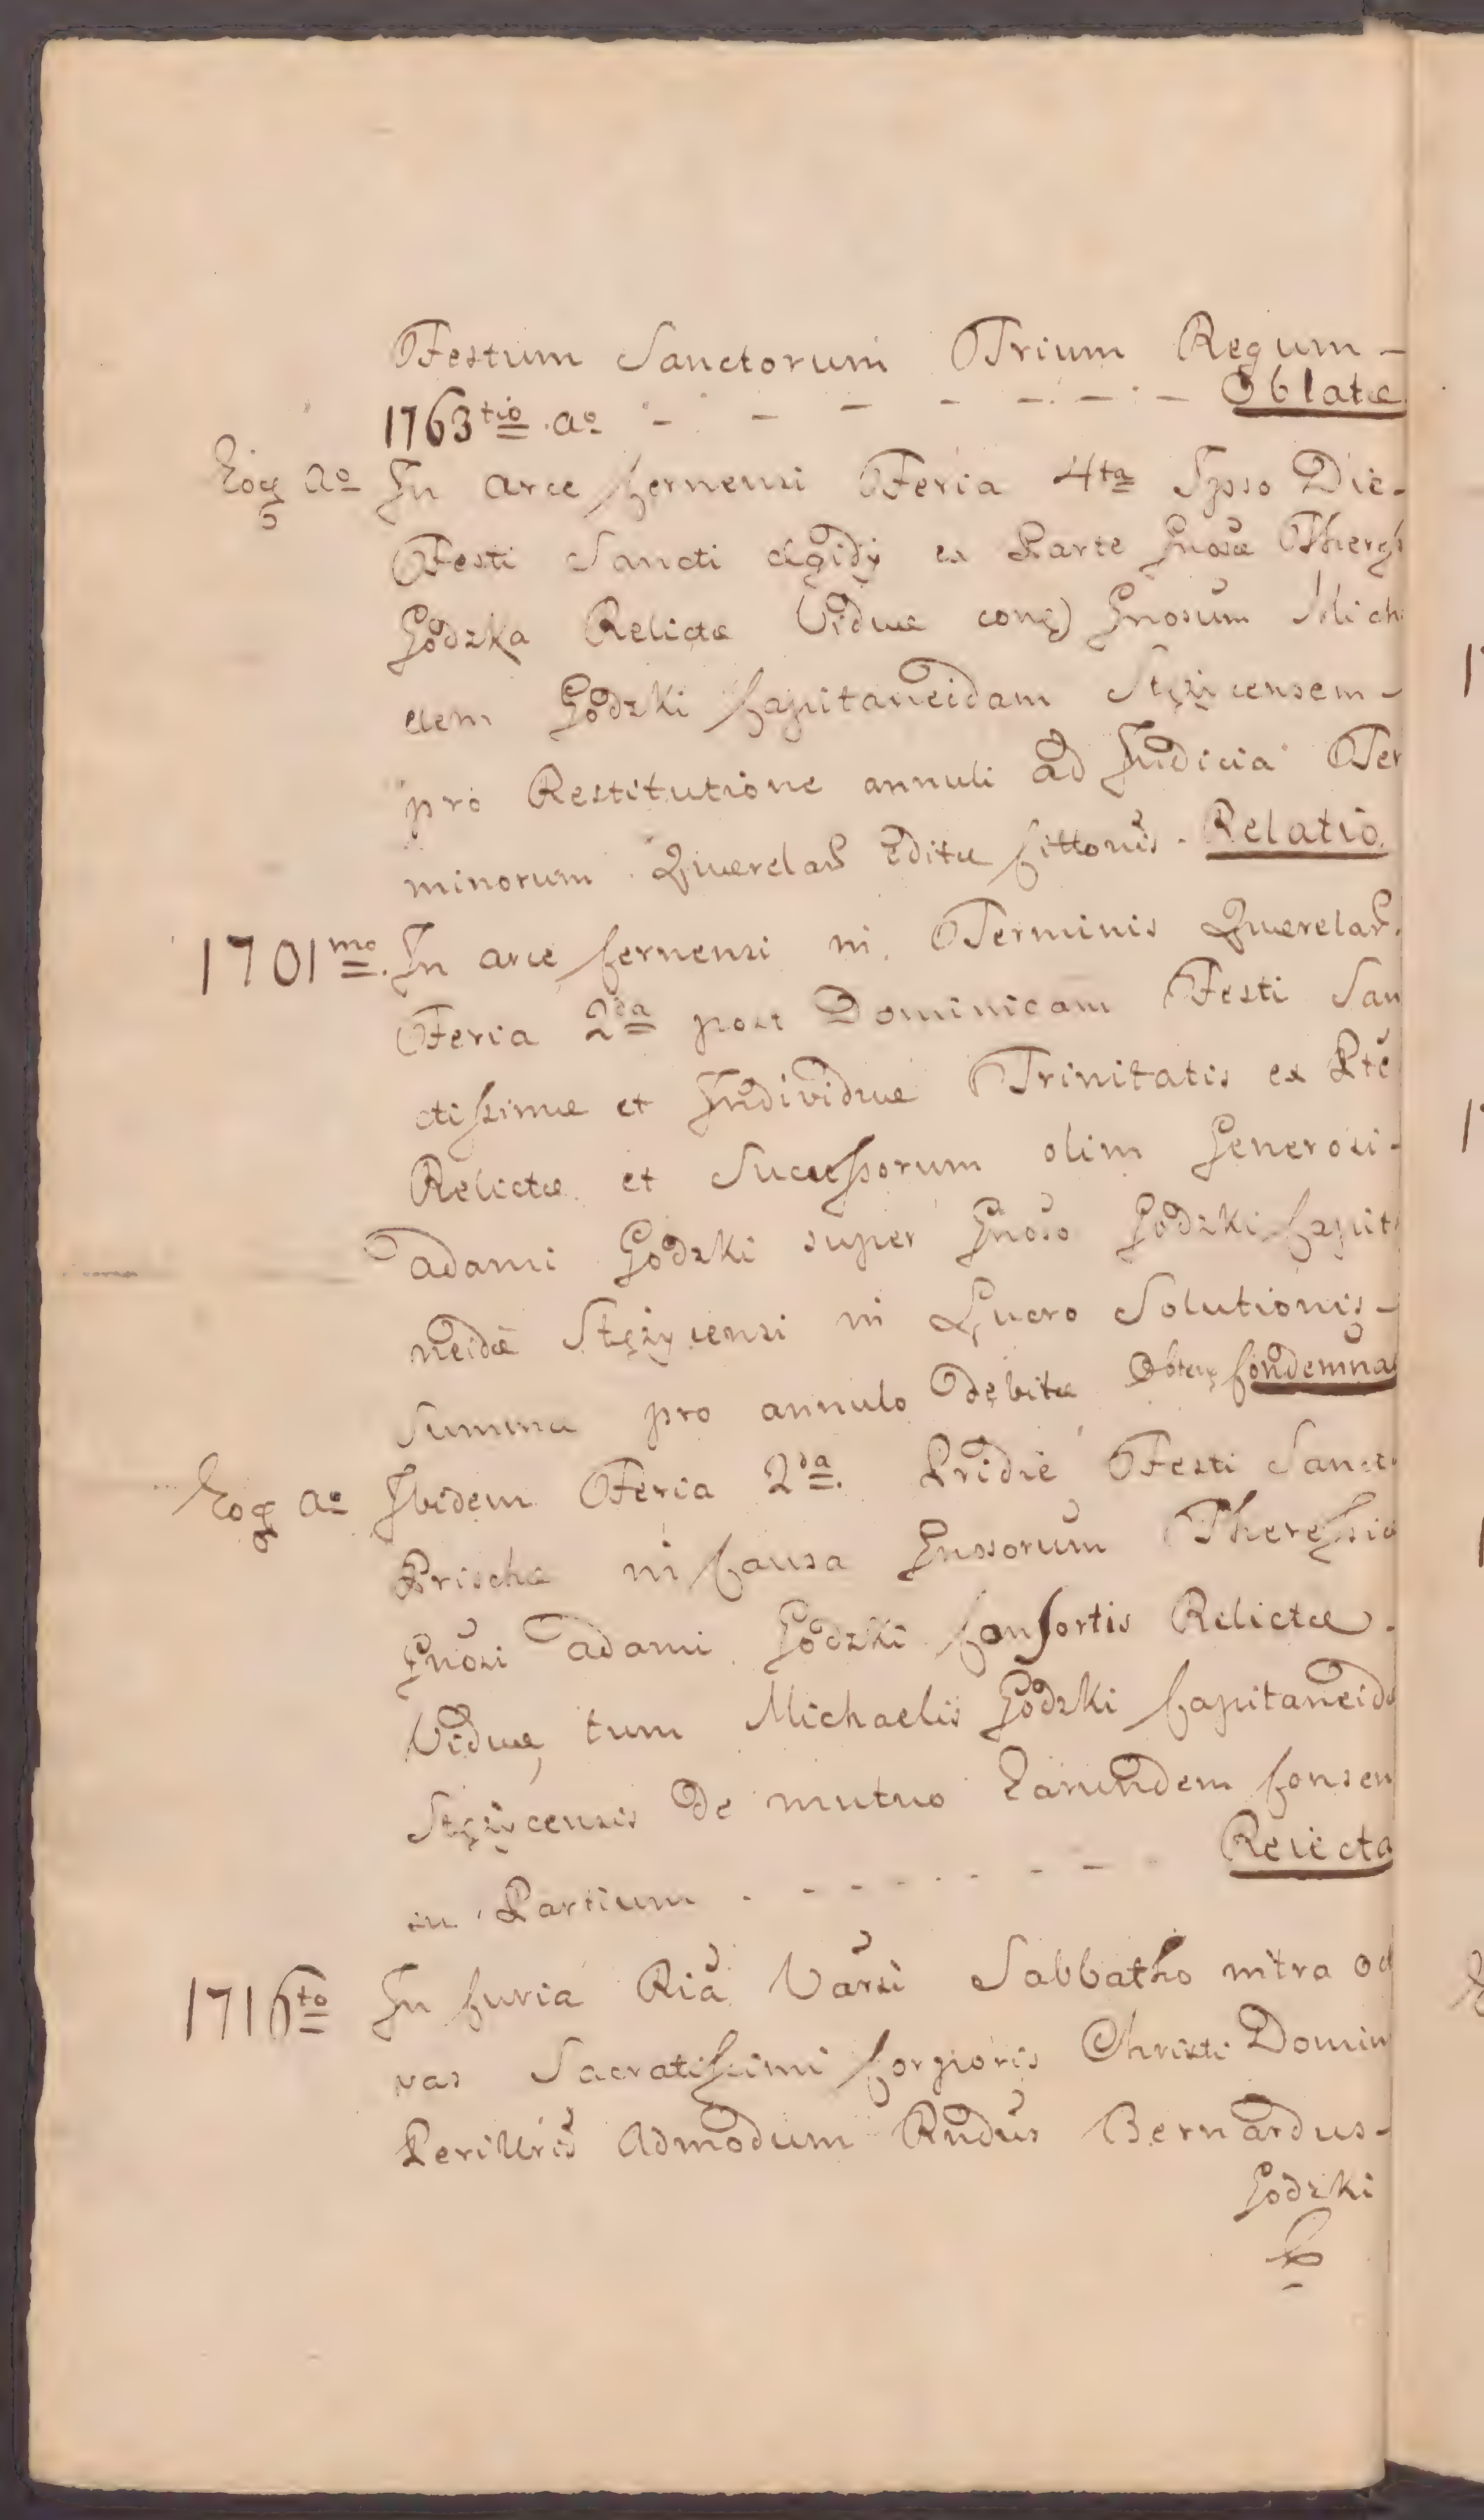 Festum Sanctorum Trium Regum -
1763tio. ao - - - - - - - Oblatæ
Eoq ao In arce Cernensi Feria 4ta Ipso Die -
Festi Sancti Ægidÿ ex Parte Gnosæ Theres
Godzka Relictæ Viduæ conq) Gnosum Mich
aem Godzki Capitaneidam Stężycensem -
pro Restitutione annuli ad Judicia Ter
minorum Querelar editæ Cittonis - Relatio.
1701mo. In arce Cernensi in Terminis Querelar.
Feria 2da post Dominicam Festi San
ctissimæ et Individuæ Trinitatis ex Pte
Relictæ et Successorum olim Generosi -
adami Godzki super Gnoso Godzki Capita
neidæ Stężycensi in Lucro Solutionis -
summæ pro annulo debitæ Obten Condemna
Eoq ao Ibidem Feria 2da. Pridie Festi Sanct
Prischæ in Causa Gnosorum Theressia
Gnosi adami Godzki Consortis Relictæ.
Viduæ, tum Michaelis Godzki Capitaneida
Stężycensis de mutuo Earundem Consen
su Partium - - - - - - - - Reiecta
1716to In Curia Ria Varsi Sabbatho intra oct
vas Sacratissimi Corporis Christi Domin
Perillris Admodum Rndus Bernardus -
Godzki